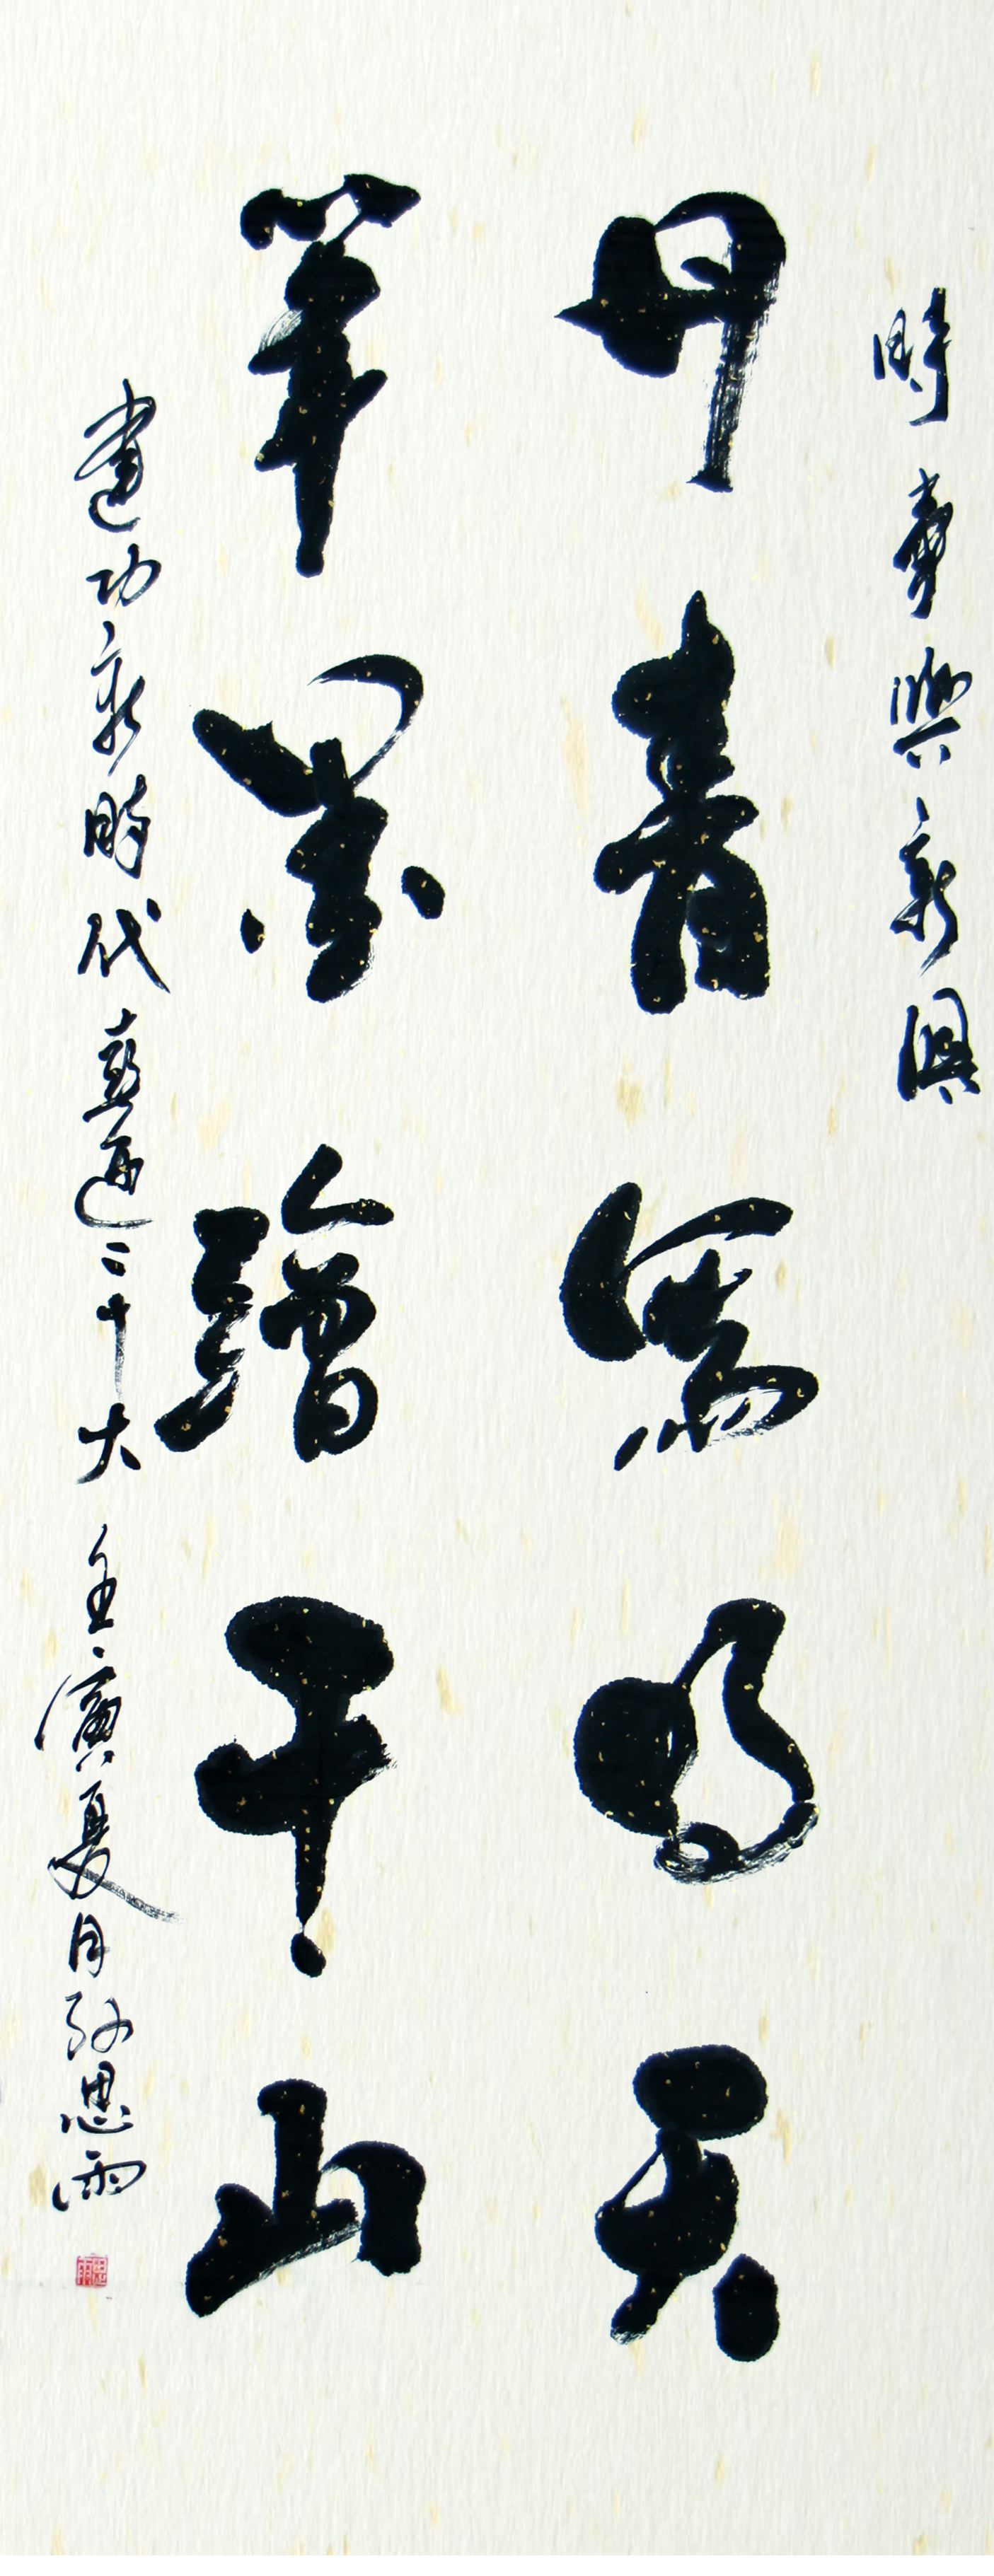 時韋與新俱
丹青寫明天
筆墨繪千山
建功新時代喜迎二十大 壬寅夏月孙思雨